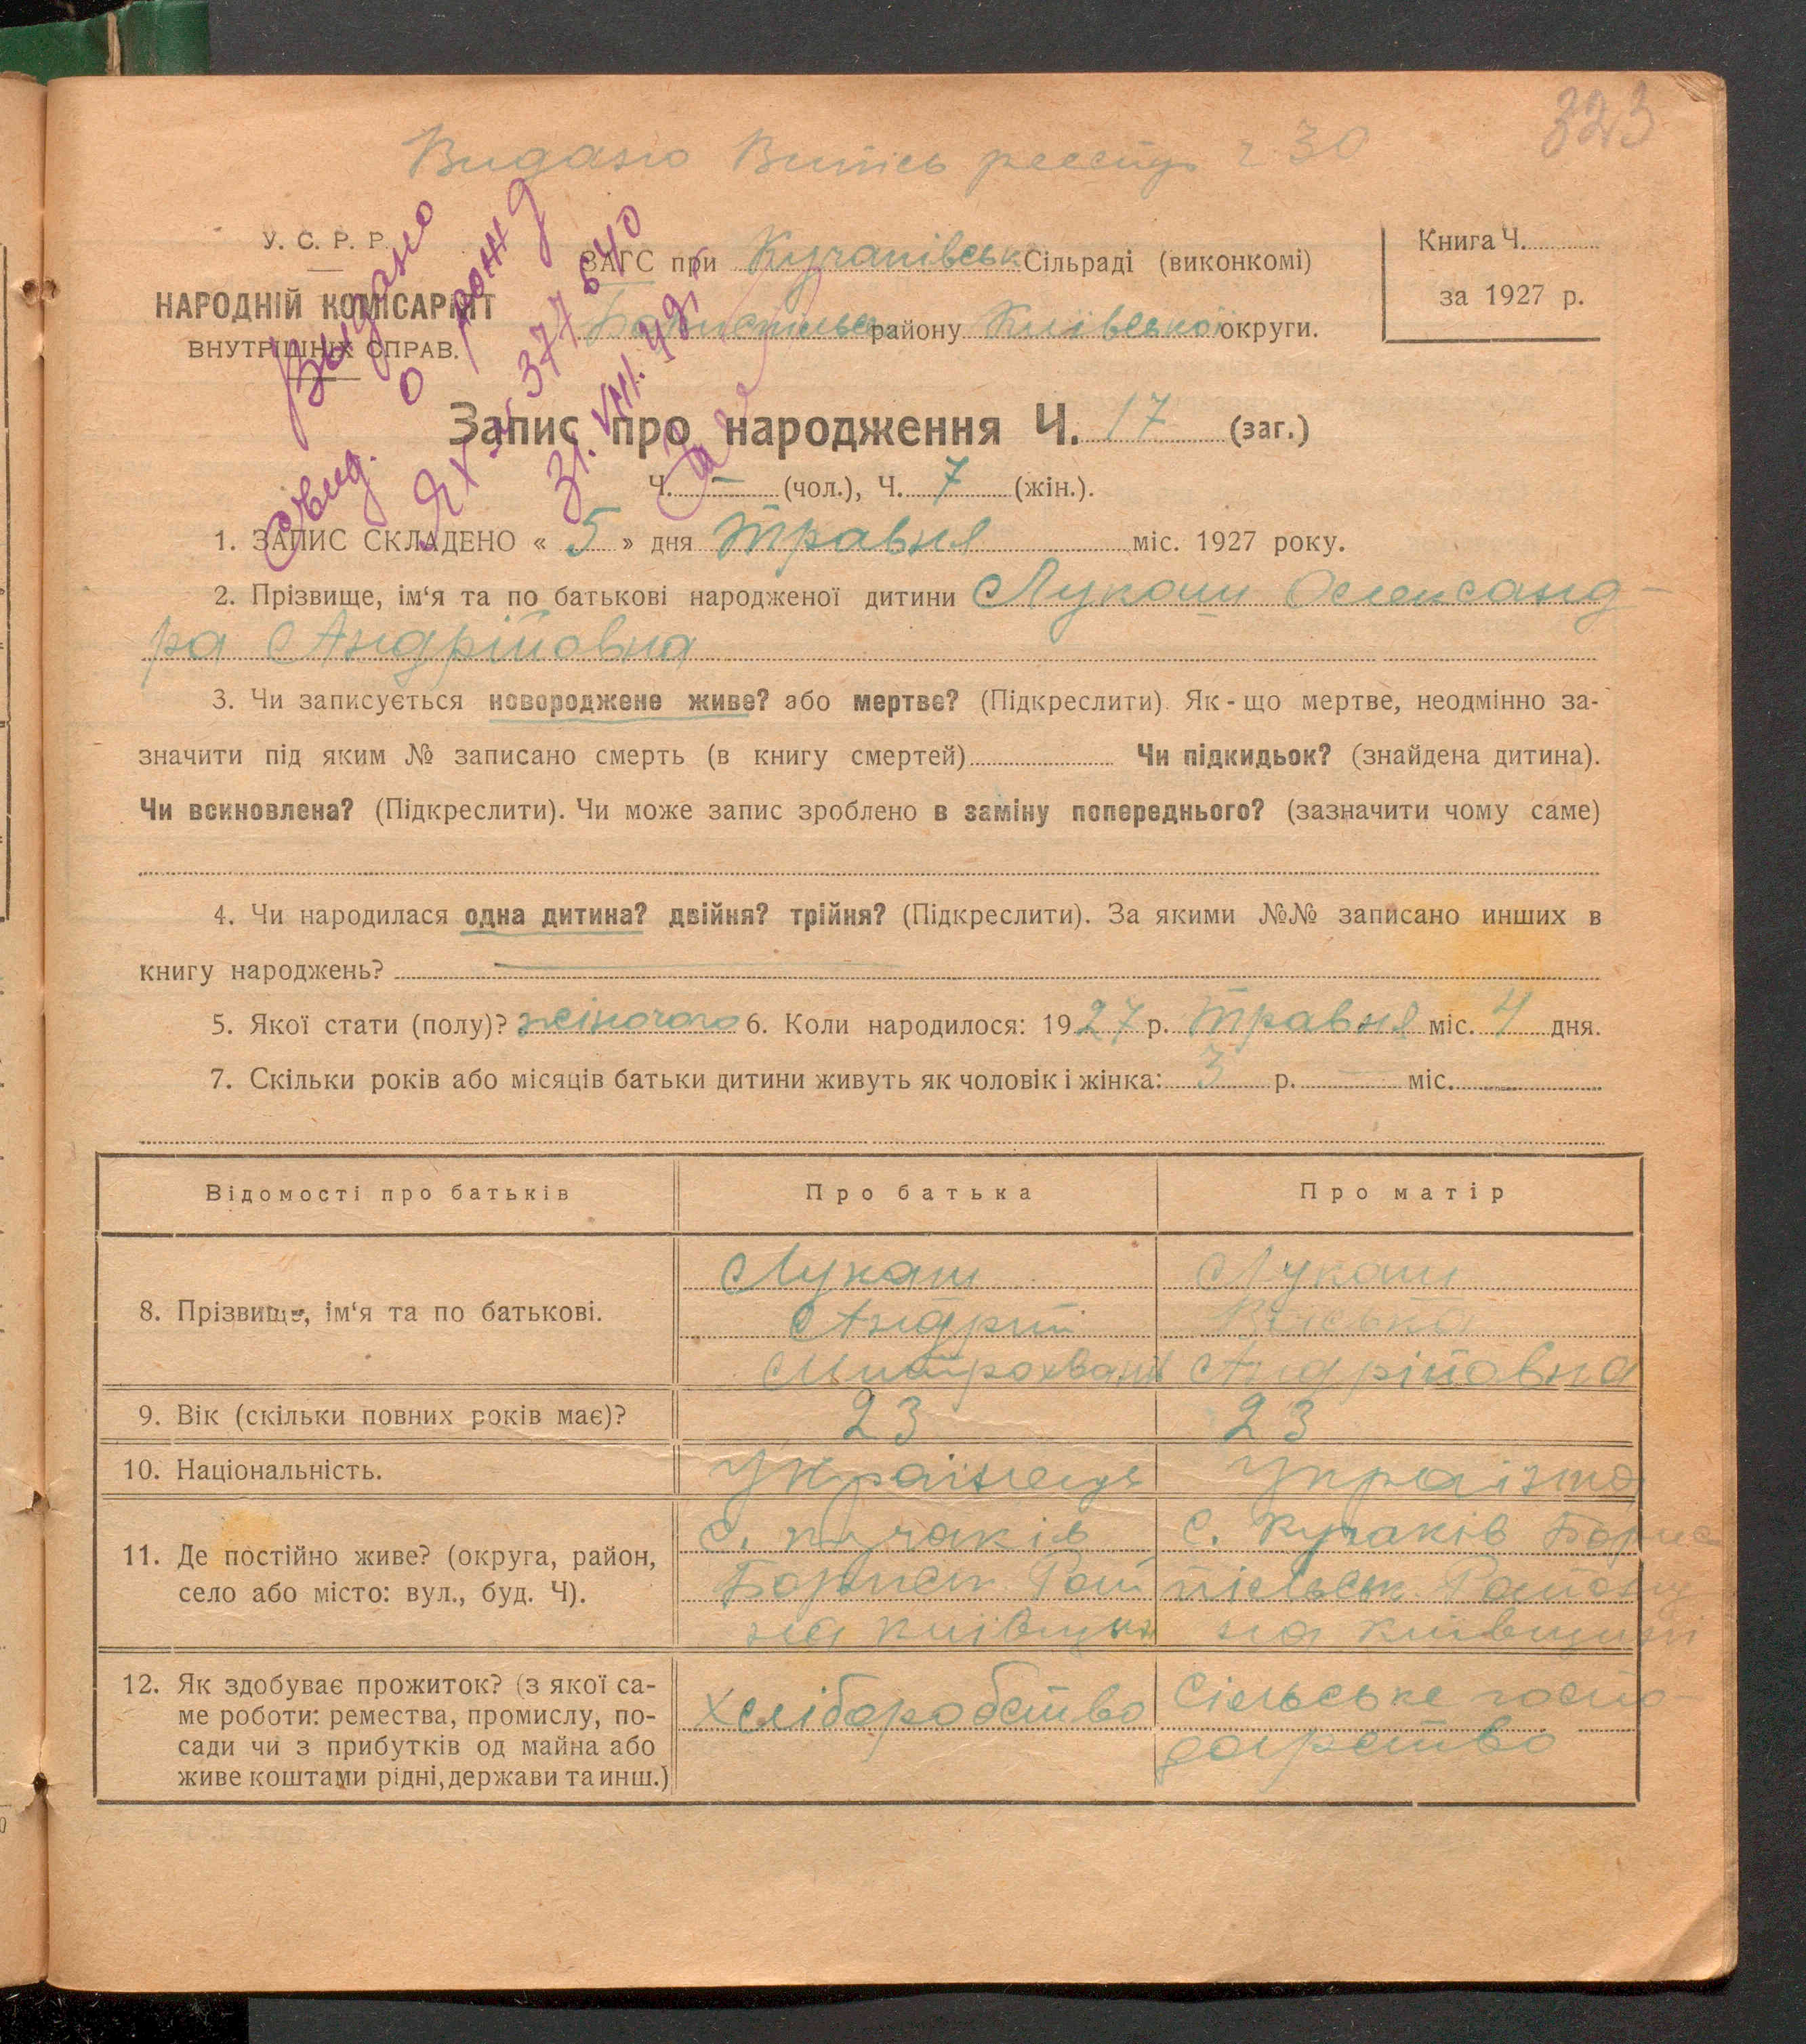 323
Видано Витісь реєстр ч. 30
У. С. Р. Р.
НАРОДНІЙ КОМІСАРІЯТ
ВНУТРІШНІХ СПРАВ.
Видано
свид. о рожд
ЯХ № 377640
31. VIII. 49 г.
ЗАГС при Кучаківськ Сільраді (виконкомі)
Бориспільськ району Київської округи.
Книга Ч.
за 1927 р.
Запис про народження Ч. 17 (заг.)
Ч. — (чол.), Ч. 7 (жін.).
1. ЗАПИС СКЛАДЕНО « 5 » дня Травня міс. 1927 року.
2. Прізвище, ім‘я та по батькові народженої дитини Лукаш Олександ-
ра Андрійовна
3. Чи записується новороджене живе? або мертве? (Підкреслити). Як-що мертве, неодмінно за-
значити під яким № записано смерть (в книгу смертей) Чи підкидьок? (знайдена дитина).
Чи всиновлена? (Підкреслити). Чи може запис зроблено в заміну попереднього? (зазначити чому саме)
4. Чи народилася одна дитина? двійня? трійня? (Підкреслити). За якими №№ записано инших в
книгу народжень? —
5. Якої стати (полу)? жіночого 6. Коли народилося: 1927 р. Травня міс. 4 дня.
7. Скільки років або місяців батьки дитини живуть як чоловік і жінка: 3 р. — міс.
Відомості про батьків Про батька Про матір
8. Прізвище, ім‘я та по батькові.
Лукаш
Андрій
Митрохван
Лукаш
Андрійовна
9. Вік (скільки повних років має)? 23 23
10. Національність. Українець Українка
11. Де постійно живе? (округа, район,
село або місто: вул., буд. Ч).
с. Кучаків
Борисп Рай
на Київщині
с. Кучаків Борис
пільськ Району
на Київщині
12. Як здобуває прожиток? (з якої са-
ме роботи: ремества, промислу, по-
сади чи з прибутків од майна або
живе коштами рідні, держави та инш.)
хліборобство
Сільське госпо-
дарство